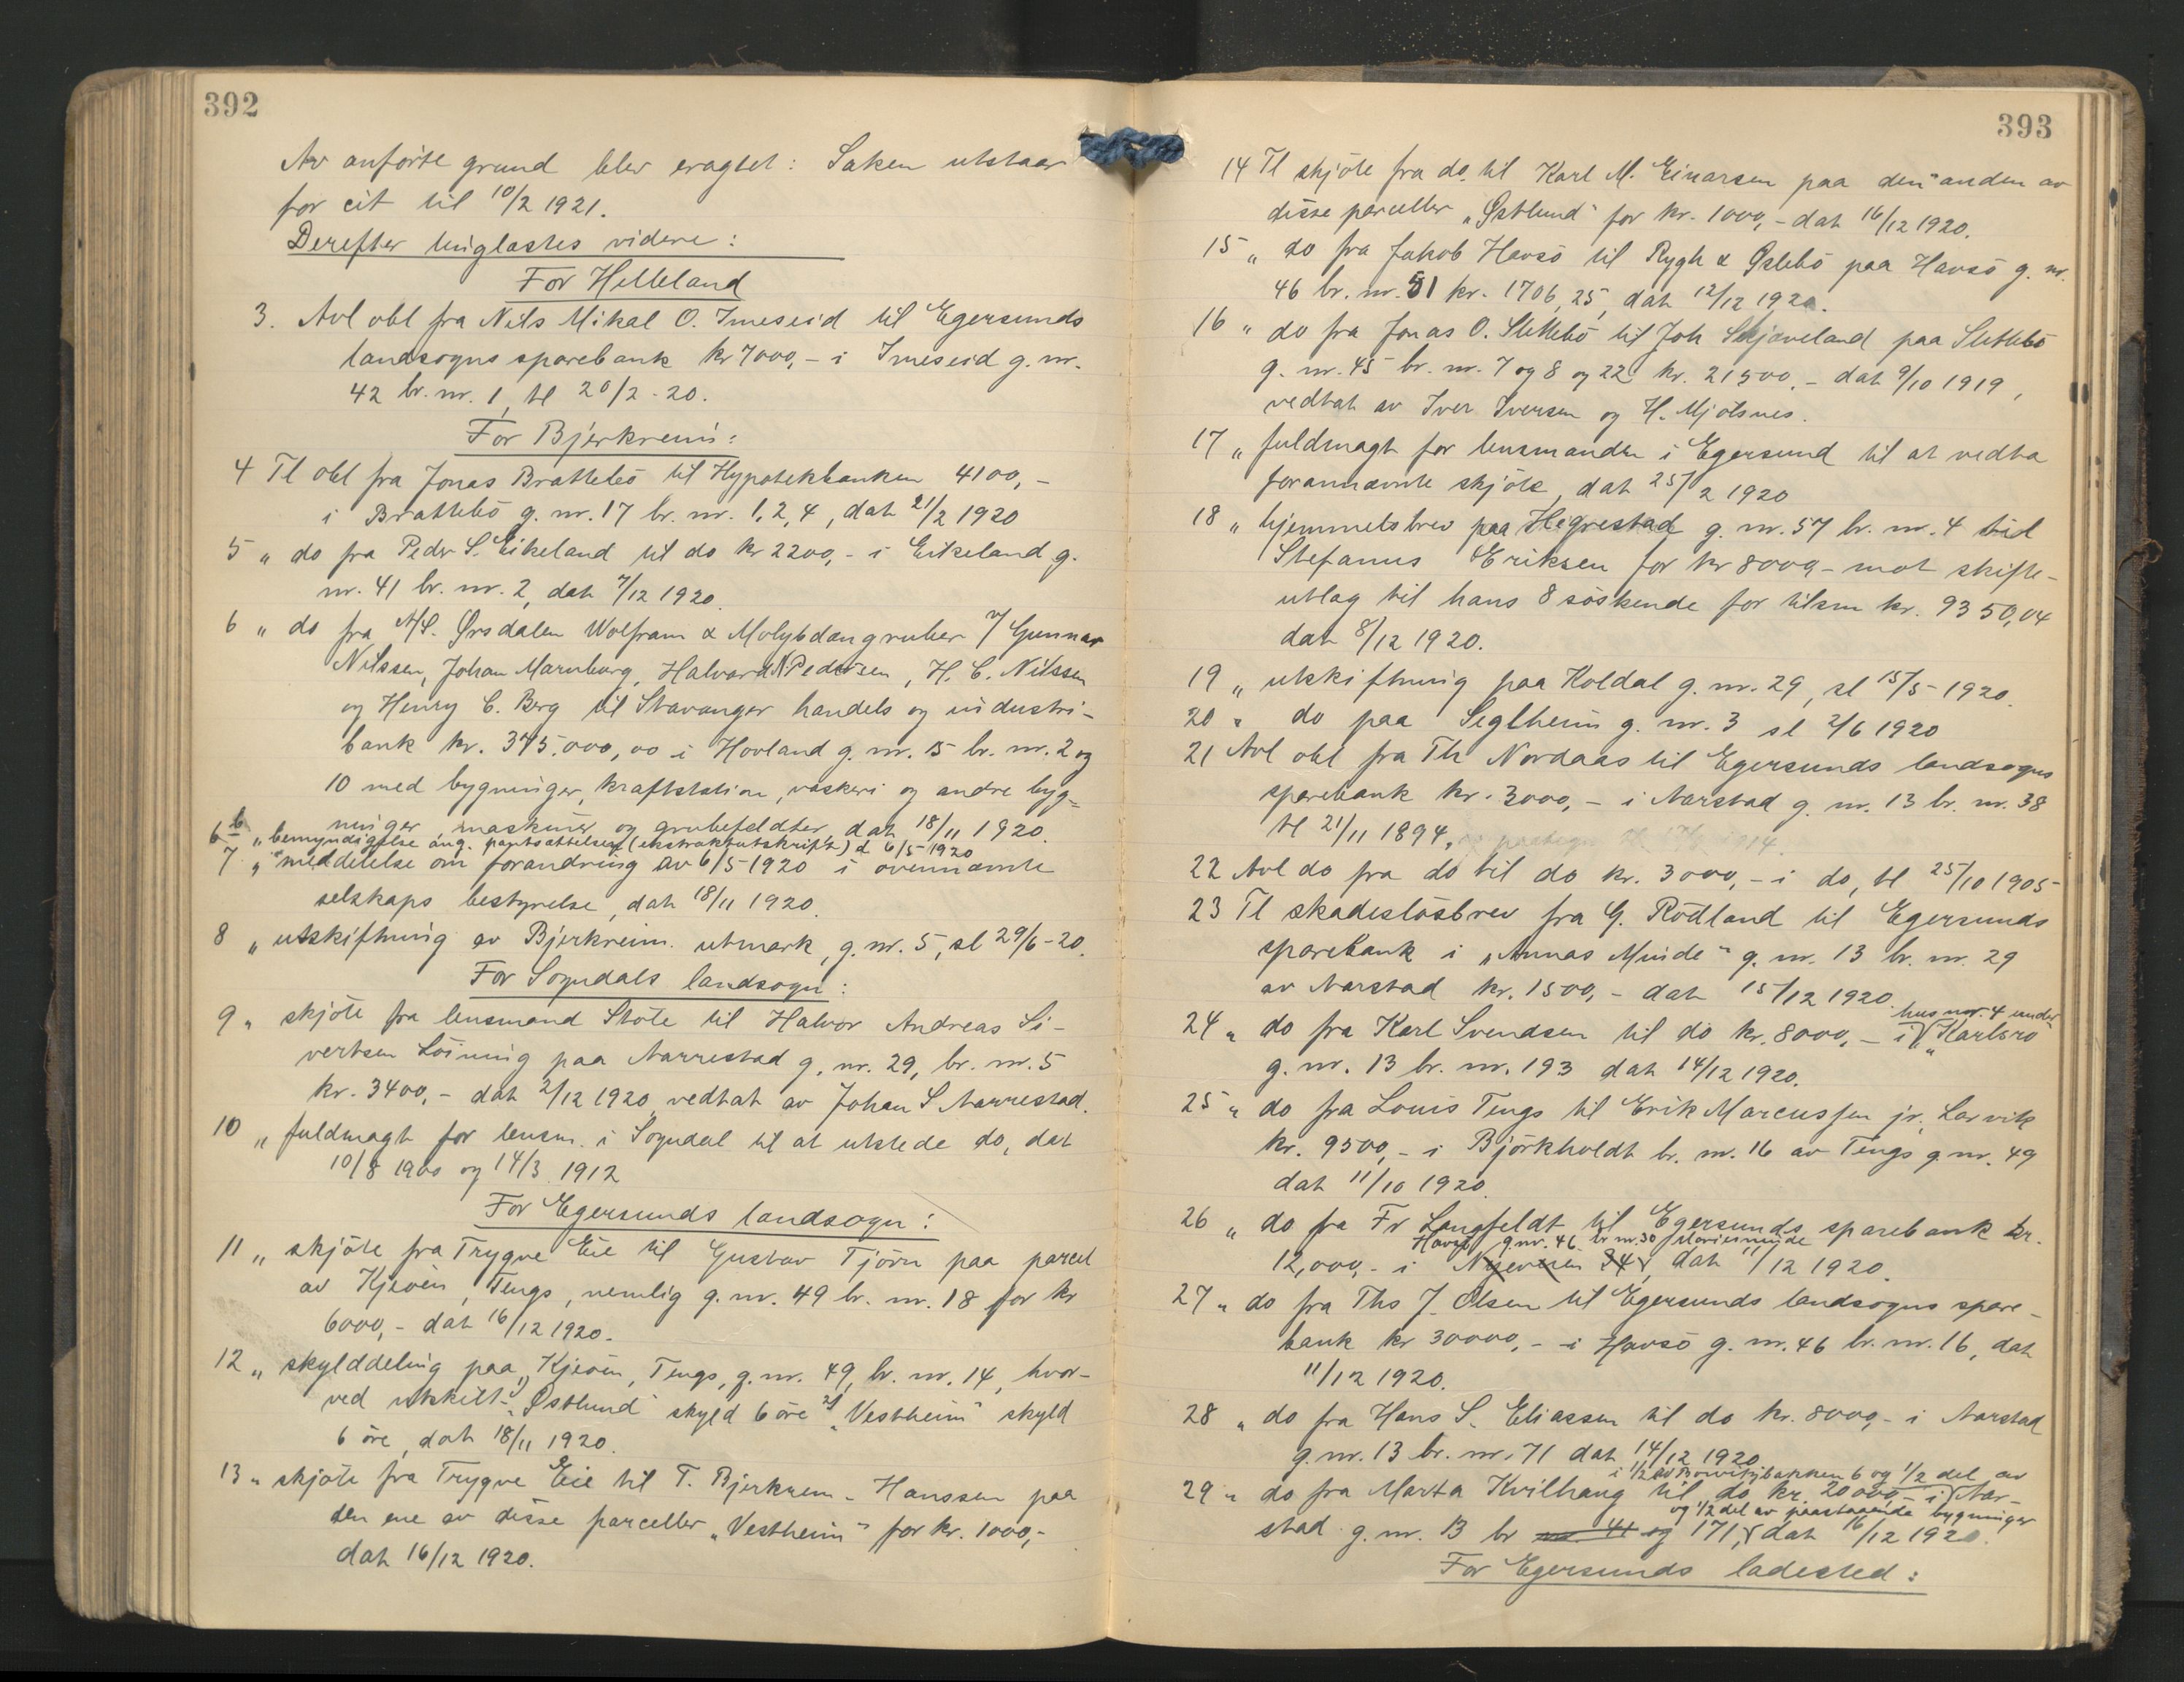 392
Av anførte grund blev eragtet: Saken utstaar
for eit til 10/2 1921.
Derefter tinglæstes videre:
For Helleland
3. Avl obl fra Nils Mikal O. Imeseid til Egersunds
landsogns sparebank kr 7000,- i Imeseid g. nr.
42 br. nr. 1, tl 20/2-20.
For Bjerkreim:
4 Tl obl fra Jonas Brattebö til Hypotekbanken 4100,-
i Brattebö g. nr. 17 br. nr. 1, 2, 4, dat 21/2 1920
5 " do fra Peder S. Eikeland til do kr 2200,- i Eikeland g.
nr. 41 br. nr. 2, dat 7/12 1920.
6 " do fra A/S. Ørsdalen Wolfram & Molybdængruber v/ Gunnar
Nilssen, Johan Marnburg, Halvard N. Pedersen, H. C. Nilssen
og Henry C. Berg til Stavanger handels og industri-
bank kr. 375.000,00 i Hovland g. nr. 15 br. nr. 2 og
10 med bygninger, kraftstation, vaskeri og andre byg-
ninger, maskiner og grubefeldter, dat 18/11 1920.
6b " bemyndigelse ang. pantsættelsen (ekstraktutskrift) d 6/5 1920
7 " meddelelse om forandring av 6/5 1920 i ovennævnte
selskaps bestyrelse, dat 18/11 1920.
8 " utskiftning av Bjerkreim utmark, g. nr. 5, sl 29/6-20.
For Sogndals landsogn:
9 " skjöte fra lensmand Stöle til Halvor Andreas Si-
vertsen Löining paa Narrestad g. nr. 29, br. nr. 5
kr. 3400,- dat 2/12 1920, vedtat av Johan S Narrestad.
10 " fuldmagt for lensm. i Sogndal til at utstede do, dat
10/8 1900 og 14/3 1912
For Egersunds landsogn:
11 " skjöte fra Trygve Eie til Gustav Tjörn paa parcel
av Kjeöin, Tengs, nemlig g. nr. 49 br. nr. 18 for kr
6000,- dat 16/12 1920.
12 " skylddeling paa "Kjeöin, Tengs, g. nr. 49, br. nr. 14, hvor-
ved utskilt "Østlund" skyld 6 øre 2) "Vestheim" skyld
6 øre, dat 18/11 1920.
13 " skjöte fra Trygve Eie til T. Bjerkrem-Hanssen paa
den ene av disse parceller "Vestheim" for kr. 1000,-
dat 16/12 1920.
393
14 Tl skjöte fra do. til Karl M. Einarsen paa den anden av
disse parceller "Østlund" for kr. 1000,- dat 16/12 1920.
15 " do fra Jakob Havsö til Rygh & Øslebö paa Havsö g. nr.
46 br. nr. 51 kr. 1706,25, dat 12/12 1920.
16 " do fra Jonas O. Slettebö til Joh Skjæveland paa Slettebö
g. nr. 45 br. nr. 7 og 8 og 22 kr. 21500,- dat 9/10 1919,
vedtat av Iver Iversen og H. Mjölsnes.
17 " fuldmagt for lensmanden i Egersund til at vedta
forannævnte skjöte, dat 25/2 1920
18 " hjemmelsbrev paa Hegrestad g. nr. 57 br. nr. 4 til
Stefanus Eriksen for kr 8000,- mot skifte-
utlag til hans 8 söskende for tilsm kr. 9350,04
dat 8/12 1920.
19 " utskiftning paa Koldal g. nr. 29, sl 15/5-1920.
20 " do paa Seglheim g. nr. 3 sl 2/6 1920
21 Avl obl fra Th Nordaas til Egersunds landsogns
sparebank kr. 3000,- i Aarstad g. nr. 13 br. nr. 38
tl 21/11 1894,
22 Avl do fra do til do kr. 3000,- i do, tl 25/10 1905
23 Tl skadeslösbrev fra G. Rödland til Egersunds
sparebank i "Annas Minde" g. nr. 13 br. nr. 29
av Aarstad kr. 1500,- dat 15/12 1920.
hus no. 4 under
24 " do fra Karl Svendsen til do kr. 8000,- i "Karlsro"
g. nr. 13 br. nr. 193 dat 14/12 1920.
25 " do fra Louis Tengs til Erik Marcussen jr. Larvik
kr. 9500,- i Björkholdt br. nr. 16 av Tengs g nr. 49
dat 11/10 1920.
26 " do fra Fr Langfeldt til Egersunds sparebank kr.
Havsö g. nr. 46 br nr. 30 Mariesminde
12,000,- i Nyeveien 34, dat 11/12 1920.
27 " do fra Ths J. Olsen til Egersunds landsogns spare-
bank kr 30000,- i Havsö g. nr. 46 br. nr. 16, dat
11/12 1920.
28 " do fra Hans S. Eliassen til do kr. 8000,- i Aarstad
g. nr. 13 br. nr. 71 dat 14/12 1920
i 1/2 av bakken 6 og 1/2 del av
29 " do fra Marta Kvilhaug til do kr. 20000,- i Aar-
og 1/2 del av paastaaende bygninger
stad g. nr. 13 br nr. 41 og 171, dat 16/12 1920.
For Egersunds ladested: